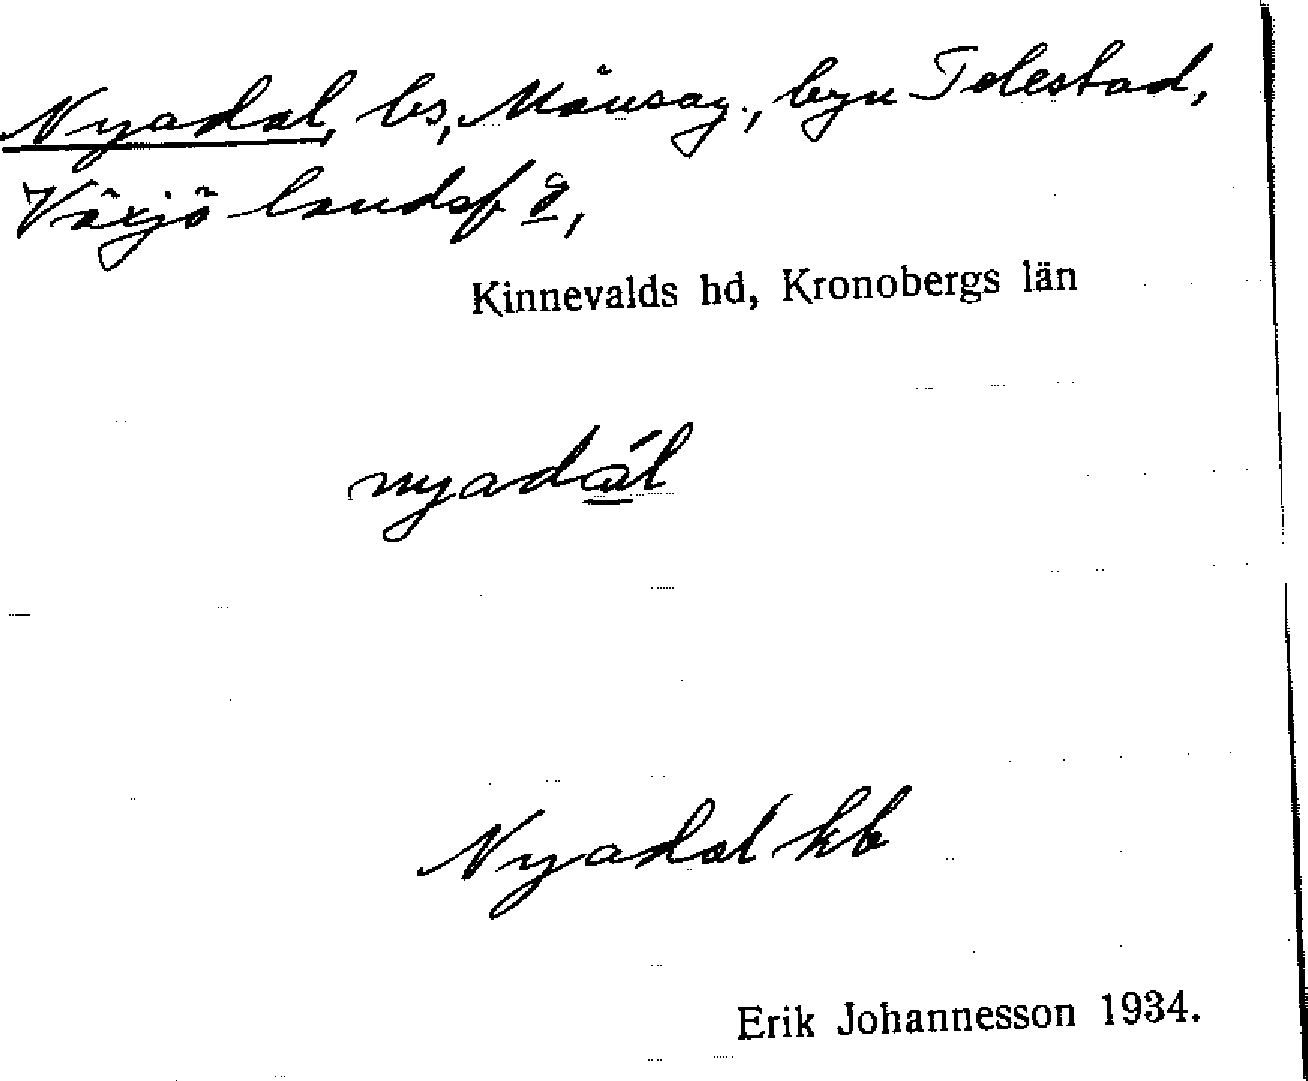 Nyadal, ls, Månsag., byn Telestad,
Växjö landsf g,
Kinnevalds hd, Kronobergs län
nyadál
Nyadal kb
Erik Johannesson 1934.